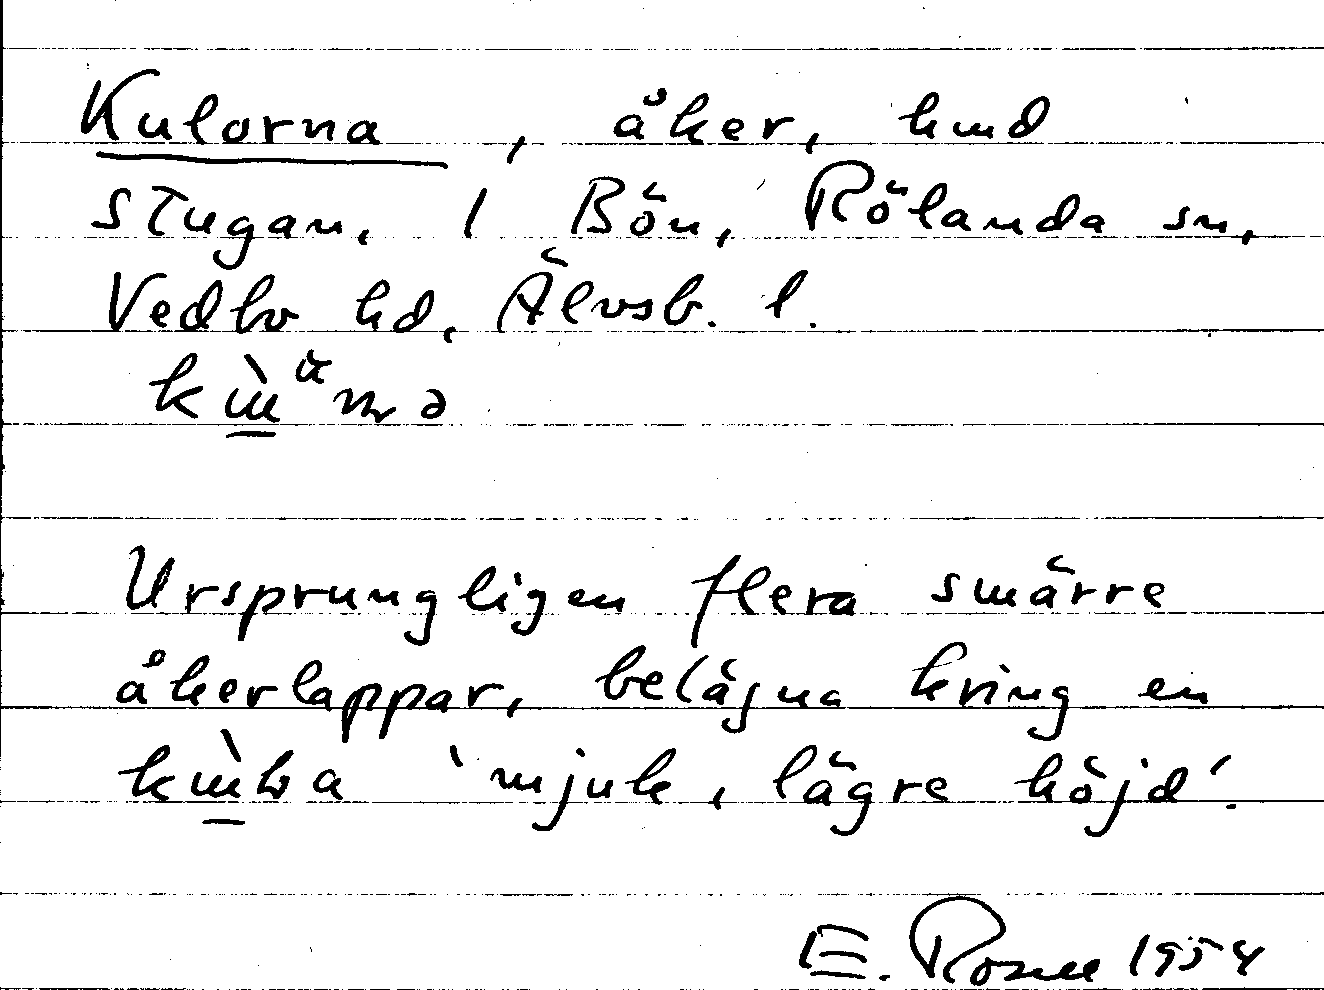 Kulorna, åker, hmd
stugan. 1 Bön, Rölanda sn,
Vedbo hd, Älvsb. l.
Ursprungligen flera smärre
åkerlappar, belägna kring en
'mjuk, lägre höjd'.
E. Rosell 1954